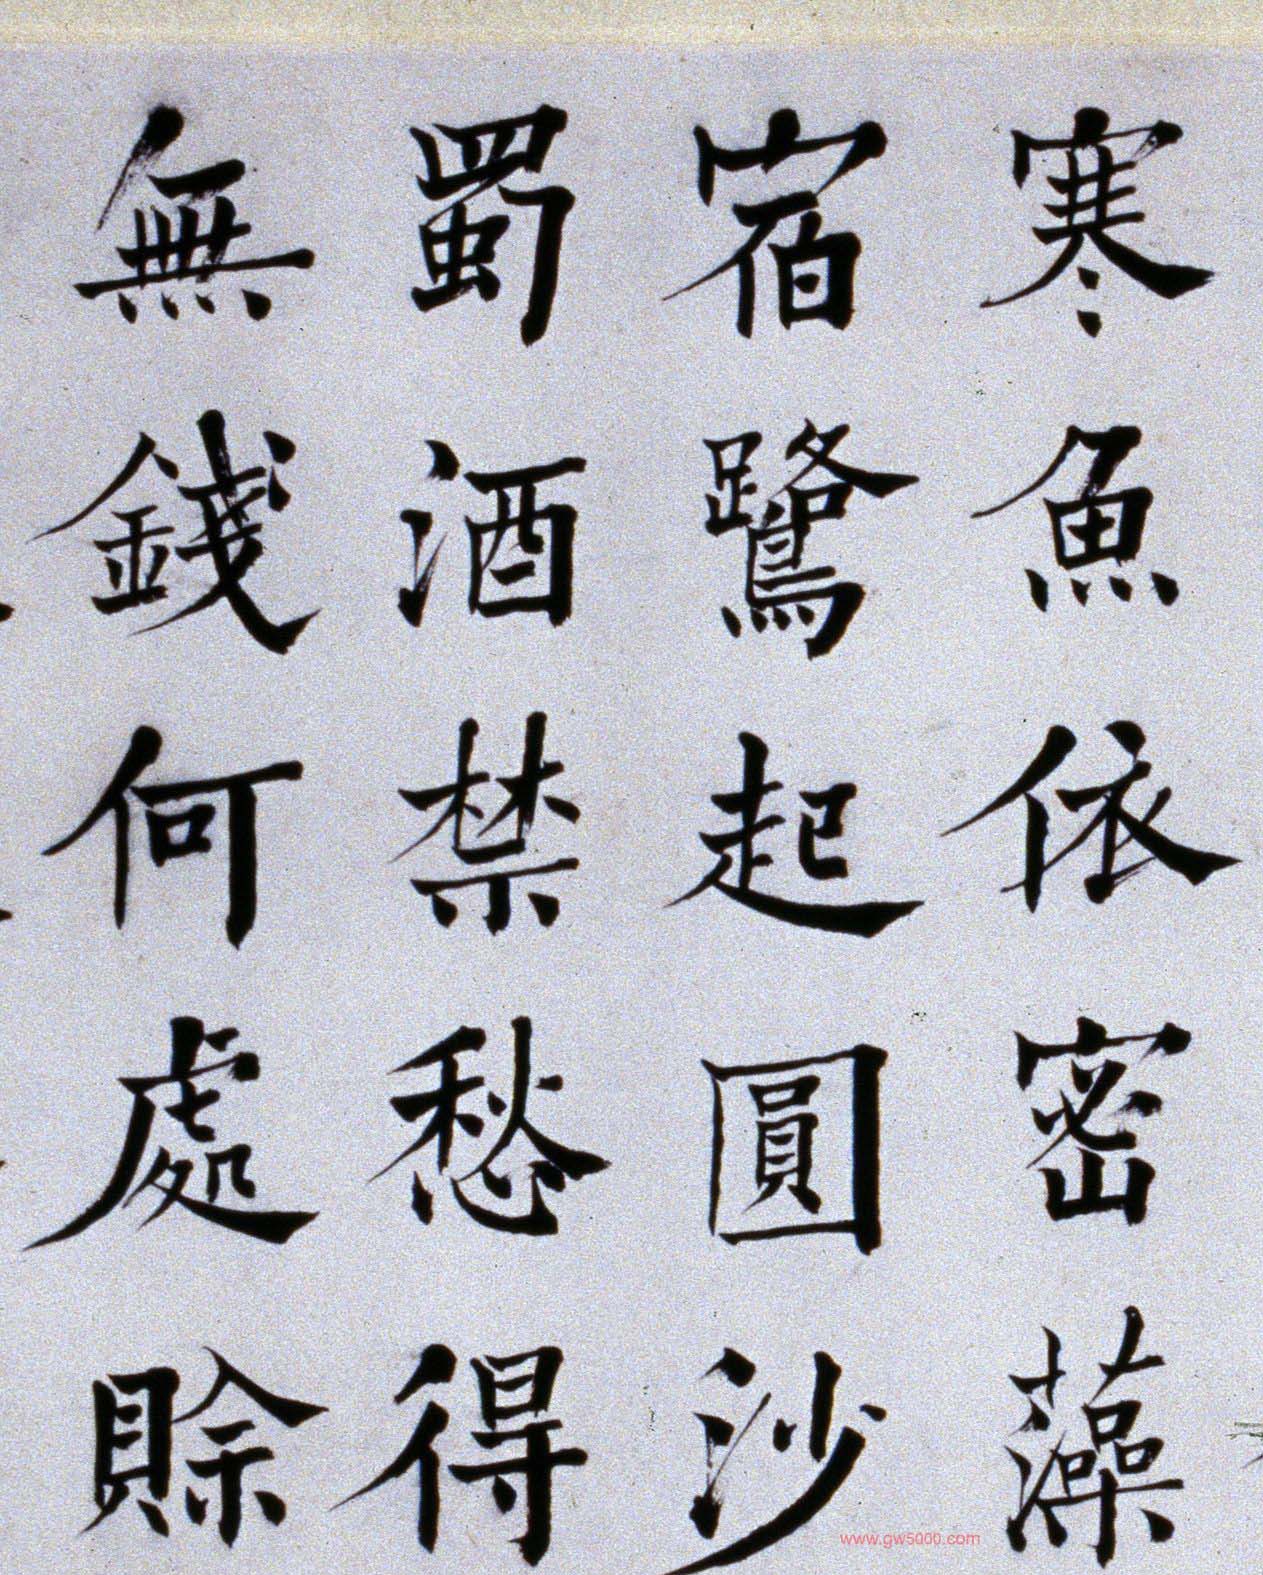 寒魚依密藻
宿鷺起圓沙
蜀酒禁愁得
無錢何處賒
www.gw5000.com